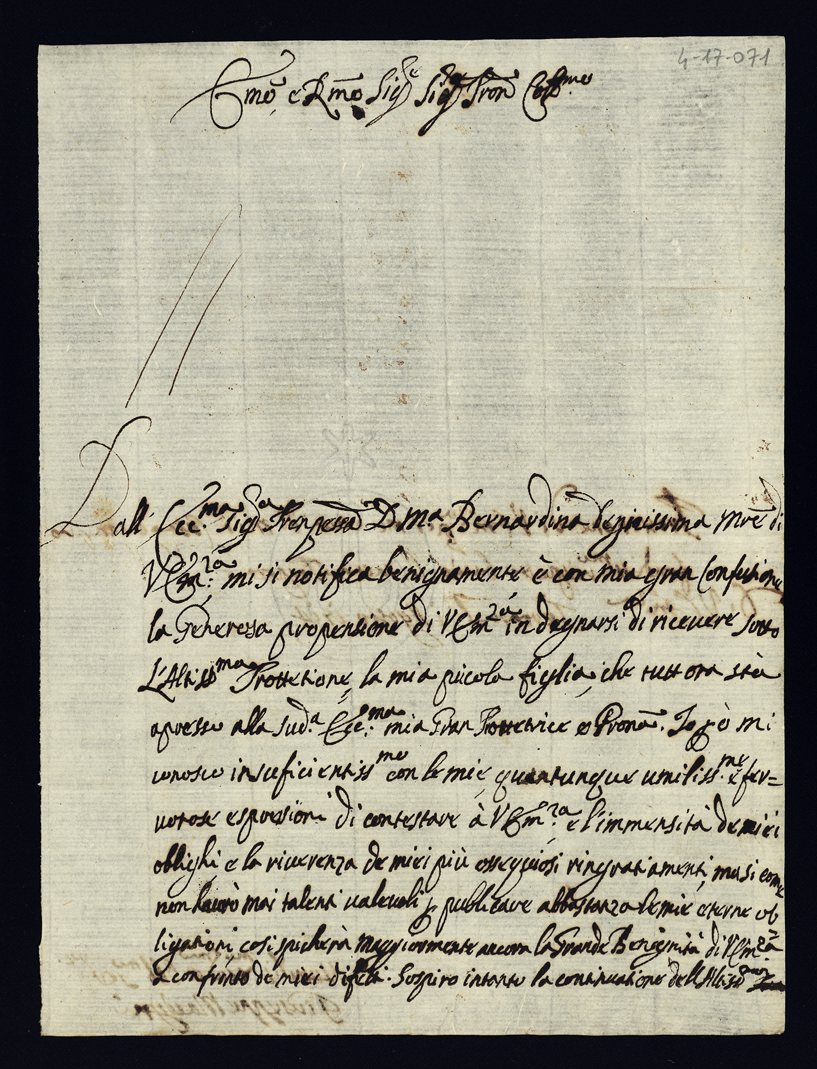 4-17-071
Emo. e Rmo. Sigre Sigre Pron Colmo
Dall' Ecc.ma Sigra Prenpessa D. Ma. Bernardina degnissima Mre di
V Em.za mi si notifica benignamente è con mia gran Confusione
la Generosa propensione di V Em.za in degnarsi di ricevere sotto
L'Altiss.ma Protettione, la mia picola figlia, che tuttora stà
apresso alla Sud.a Ecc.ma mia Gran Protetrice e Prona. Io pò mi
conosco insuficientiss.mo con le mie, quantunque umiliss.me e fer=
vorose espressioni di contestare à V Em.za e l'immensità de miei
oblighi e la riverenza de miei più ossequiosi ringratiamenti, ma si come
non haurò mai talenti valevoli p publicare abbastanza le mie eterne ob
ligationi cosi spicherà maggiormente ancora la Grande Benignità di V Em.za
a confrinto de miei difetti. Sospiro intanto la continuatione dell' Altiss.mo